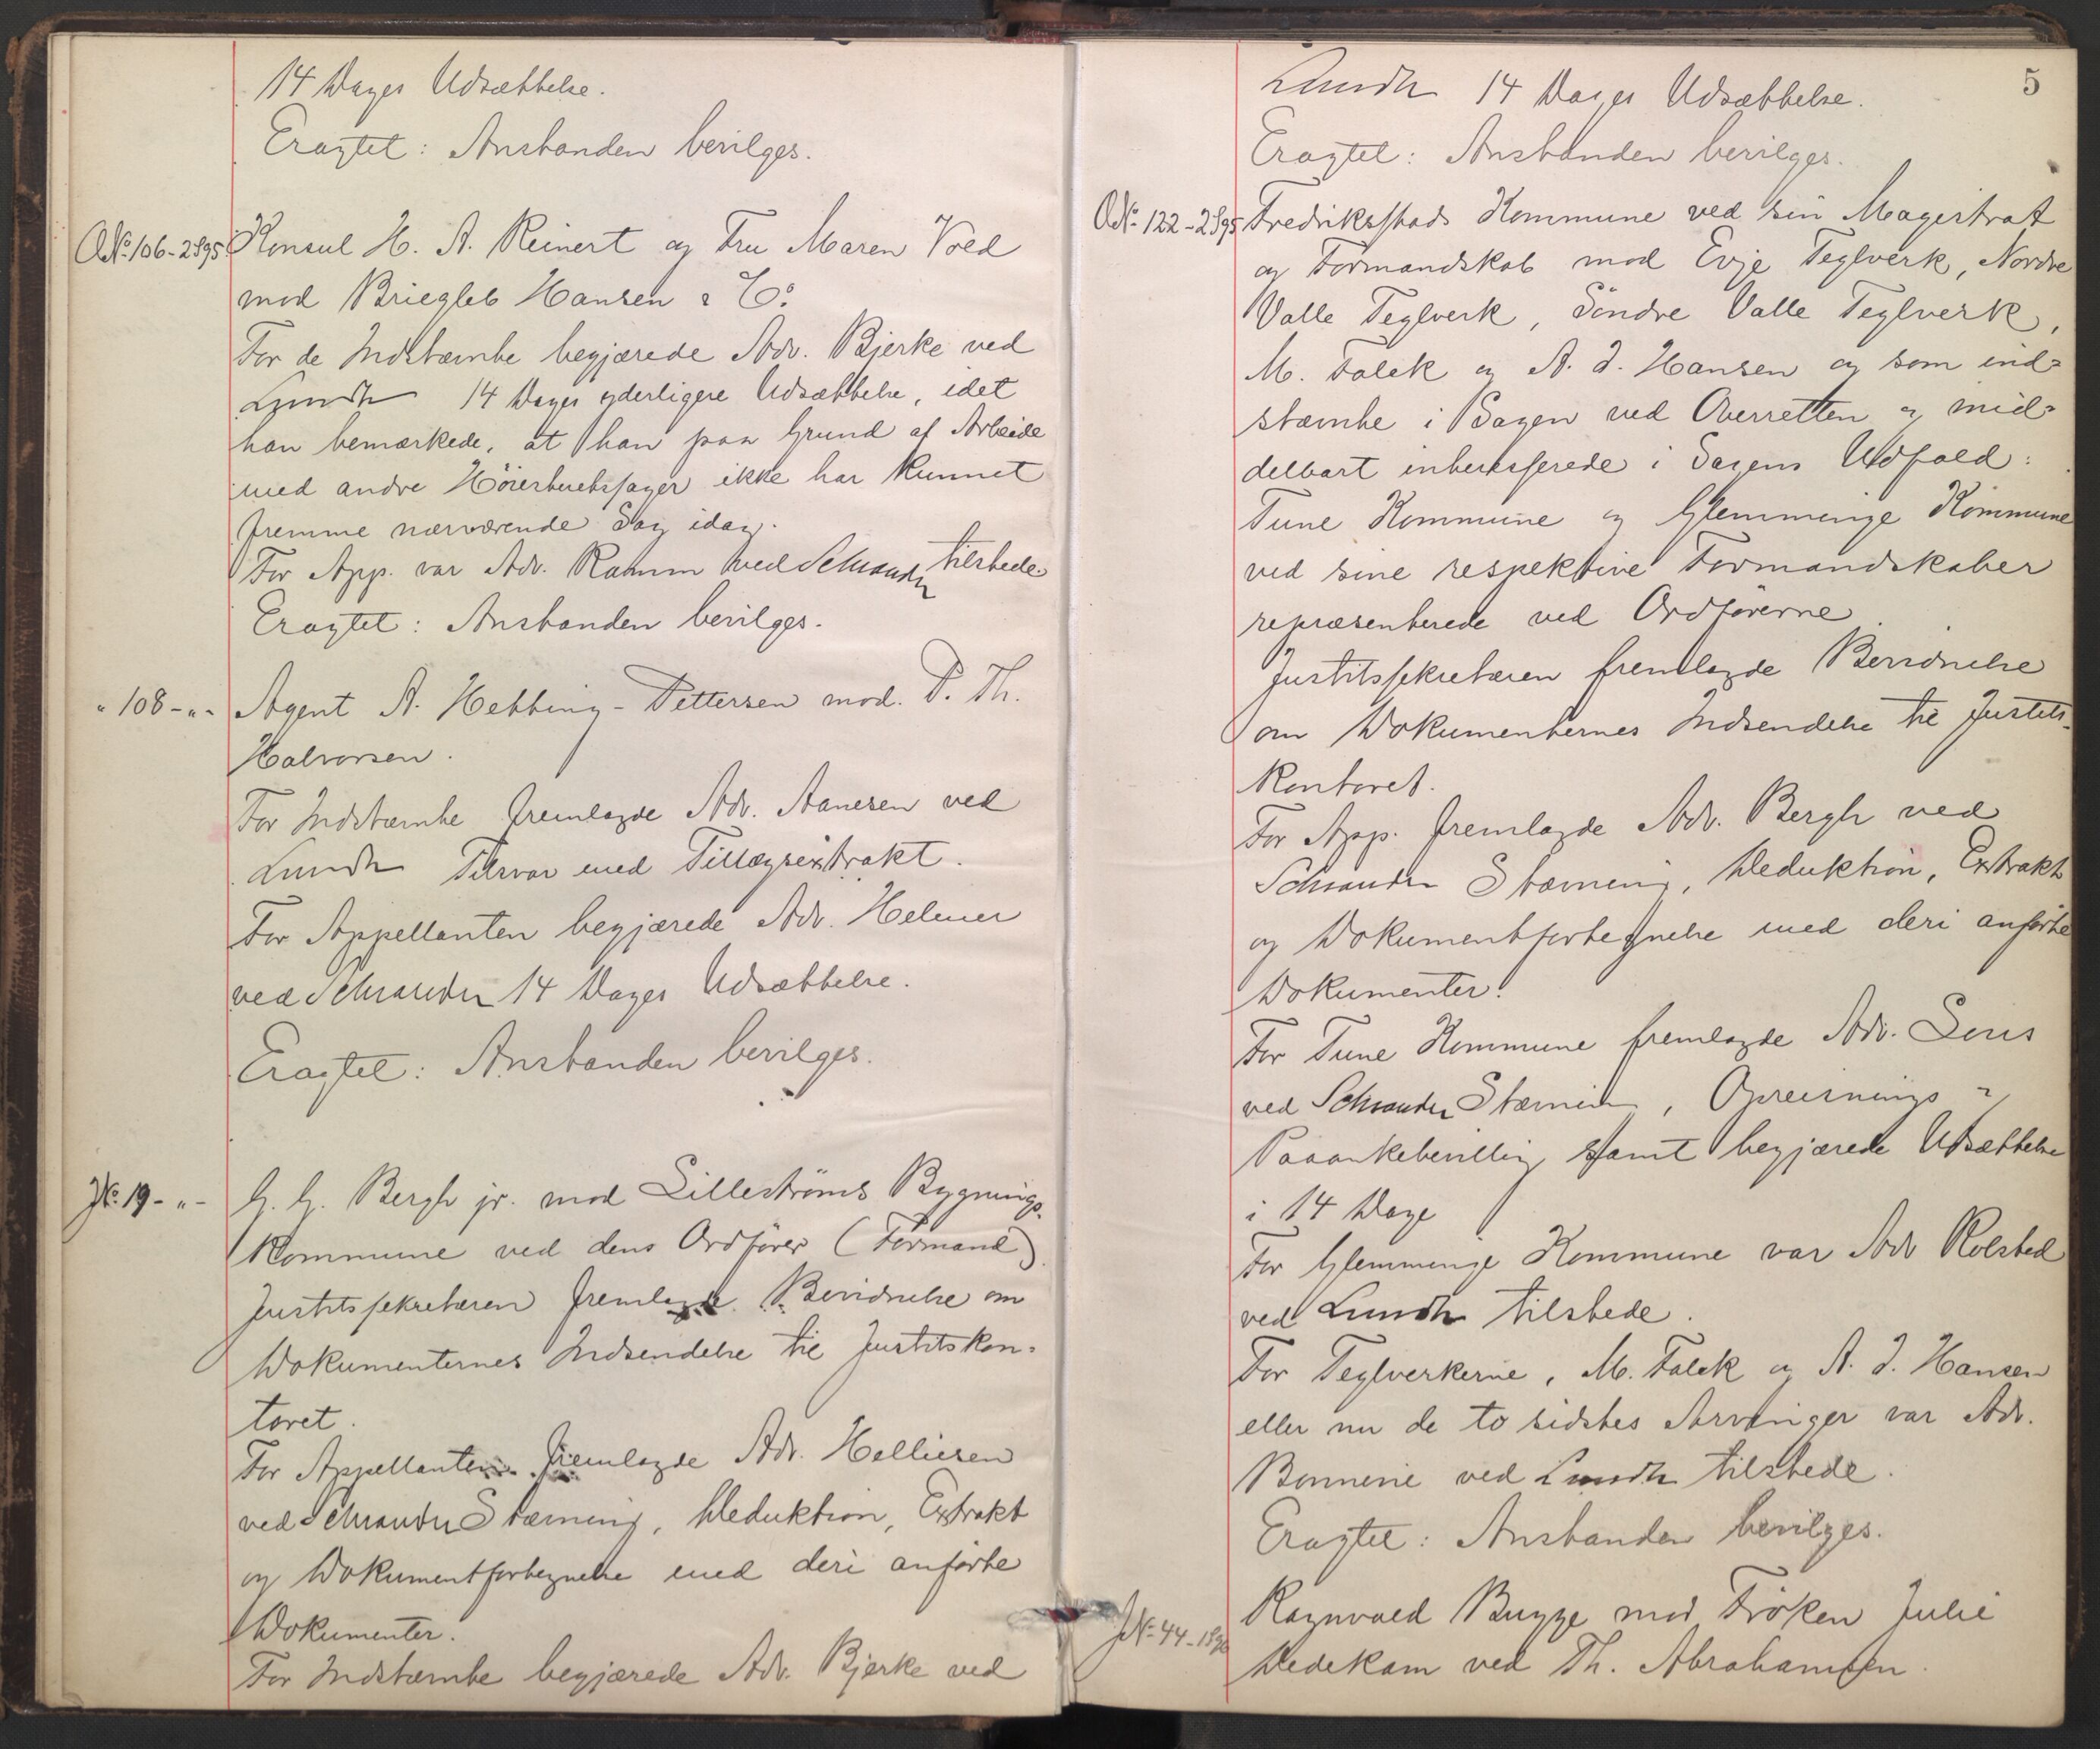 14 Dages Udsættelse.
Eragtet: Anstanden bevilges.
No. 106-2/95 Konsul H. A. Reinert og Fru Maren Vold
mod Briegleb Hansen & Co.
For de Indstævnte begjærede Adv. Bjerke ved
Lundh 14 Dages yderligere Udsættelse, idet
han bemærkede, at han paa Grund af Arbeide
med andre Höiesteretssager ikke har kunnet
fremme nærværende Sag idag.
For App. var Adv. Ramm ved Schrander tilstede.
Eragtet: Anstanden bevilges.
" 108 - " - Agent A. Hebbing-Pettersen mod P. Th.
Halvorsen.
For Indstævnte fremlagde Adv. Aanesen ved
Lundh Tilsvar med Tillægsextrakt.
For Appellanten begjærede Adv. Helmer
ved Schrander 14 Dages Udsættelse.
Eragtet: Anstanden bevilges.
No. 19 - " - G. G. Bergh jr. mod Lilleströms Bygnings-
kommune ved dens Ordförer (Formand)
Justitssekretæren fremlagde Bevidnelse om
Dokumenternes Indsendelse til Justitskon-
toret.
For Appellanten fremlagde Adv. Helliesen
ved Schrander Stævning, Deduktion, Extrakt
og Dokumentfortegnelse med deri anförte
Dokumenter.
For Indstævnte begjærede Adv. Bjerke ved
5
Lundh 14 Dages Udsættelse.
Eragtet: Anstanden bevilges.
No. 122-2/95 Fredriksstads Kommune ved sin Magistrat
og Formandskab mod Evje Teglverk, Nordre
Valle Teglverk, Söndre Valle Teglverk,
M. Falck og A. J. Hansen og som ind-
stævnte i Sagen ved Overretten og mid-
delbart interesserede i Sagens Udfald:
Tune Kommune og Glemminge Kommune
ved sine respektive Formandskaber
repræsenterede ved Ordförerne
Justitssekretæren fremlagde Bevidnelse
om Dokumenternes Indsendelse til Justits-
kontoret.
For App. fremlagde Adv. Bergh ved
Schrander Stævning, Deduktion, Extrakt
og Dokumentfortegnelse med deri anförte
Dokumenter.
For Tune Kommune fremlagde Adv.
ved Schrander Stævning, Opreisnings &
Paaankebevilling samt begjærede Udsættelse
i 14 Dage
For Glemminge Kommune var Adv Rolsted
ved Lundh tilstede.
For Teglverkerne, M. Falck og A. J. Hansen
eller nu de to sidstes Arvinger var Adv.
Bonnevie ved Lundh tilstede.
Eragtet: Anstanden bevilges.
No. 44-1896 Ragnvald Bugge mod Fröken Julie
Dedekam ved Th. Abrahamsen.